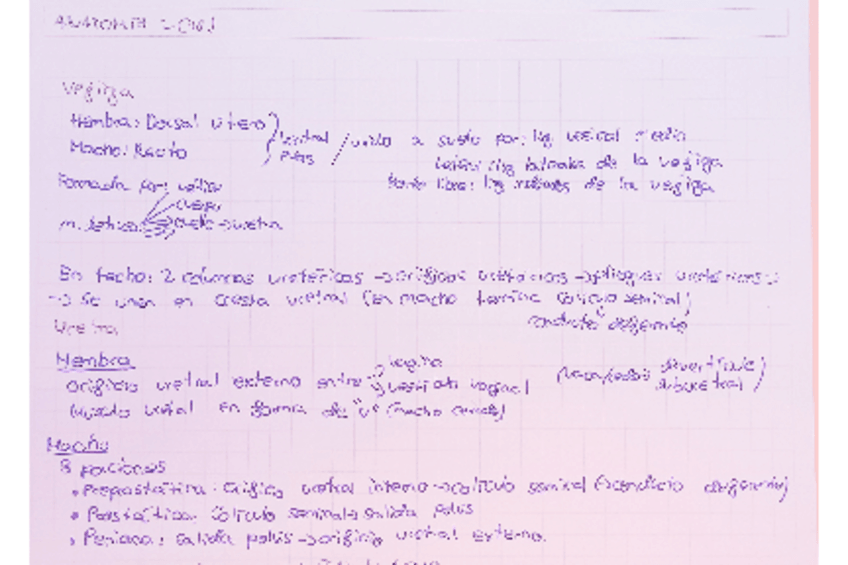 Vejiga
Hembra: Dorsal útero
Macho: Recto
ventral pubis / unido a suelo por: lig vesical medio
lateral: lig laterales de la vejiga
borde libre: lig redondos de la vejiga
Formada por: vértice
cuerpo
cuello → uretra
En techo: 2 columnas uretéricas → orificios uretéricos → pliegues uretéricos
→ se unen en cresta uretral (en macho termina colículo seminal)
conducto deferente
Uretra
Hembra
orificio uretral externo entre vagina y vestíbulo vaginal (vaca/cerda: divertículo suburetral)
Músculo uretral en forma de "U" (macho
Macho
3 porciones
• Preprostática: orificio uretral interno → colículo seminal (→ conducto deferente)
• Postática: Colículo seminal → salida pelvis
• Peniana: salida pelvis → orificio uretral externo.